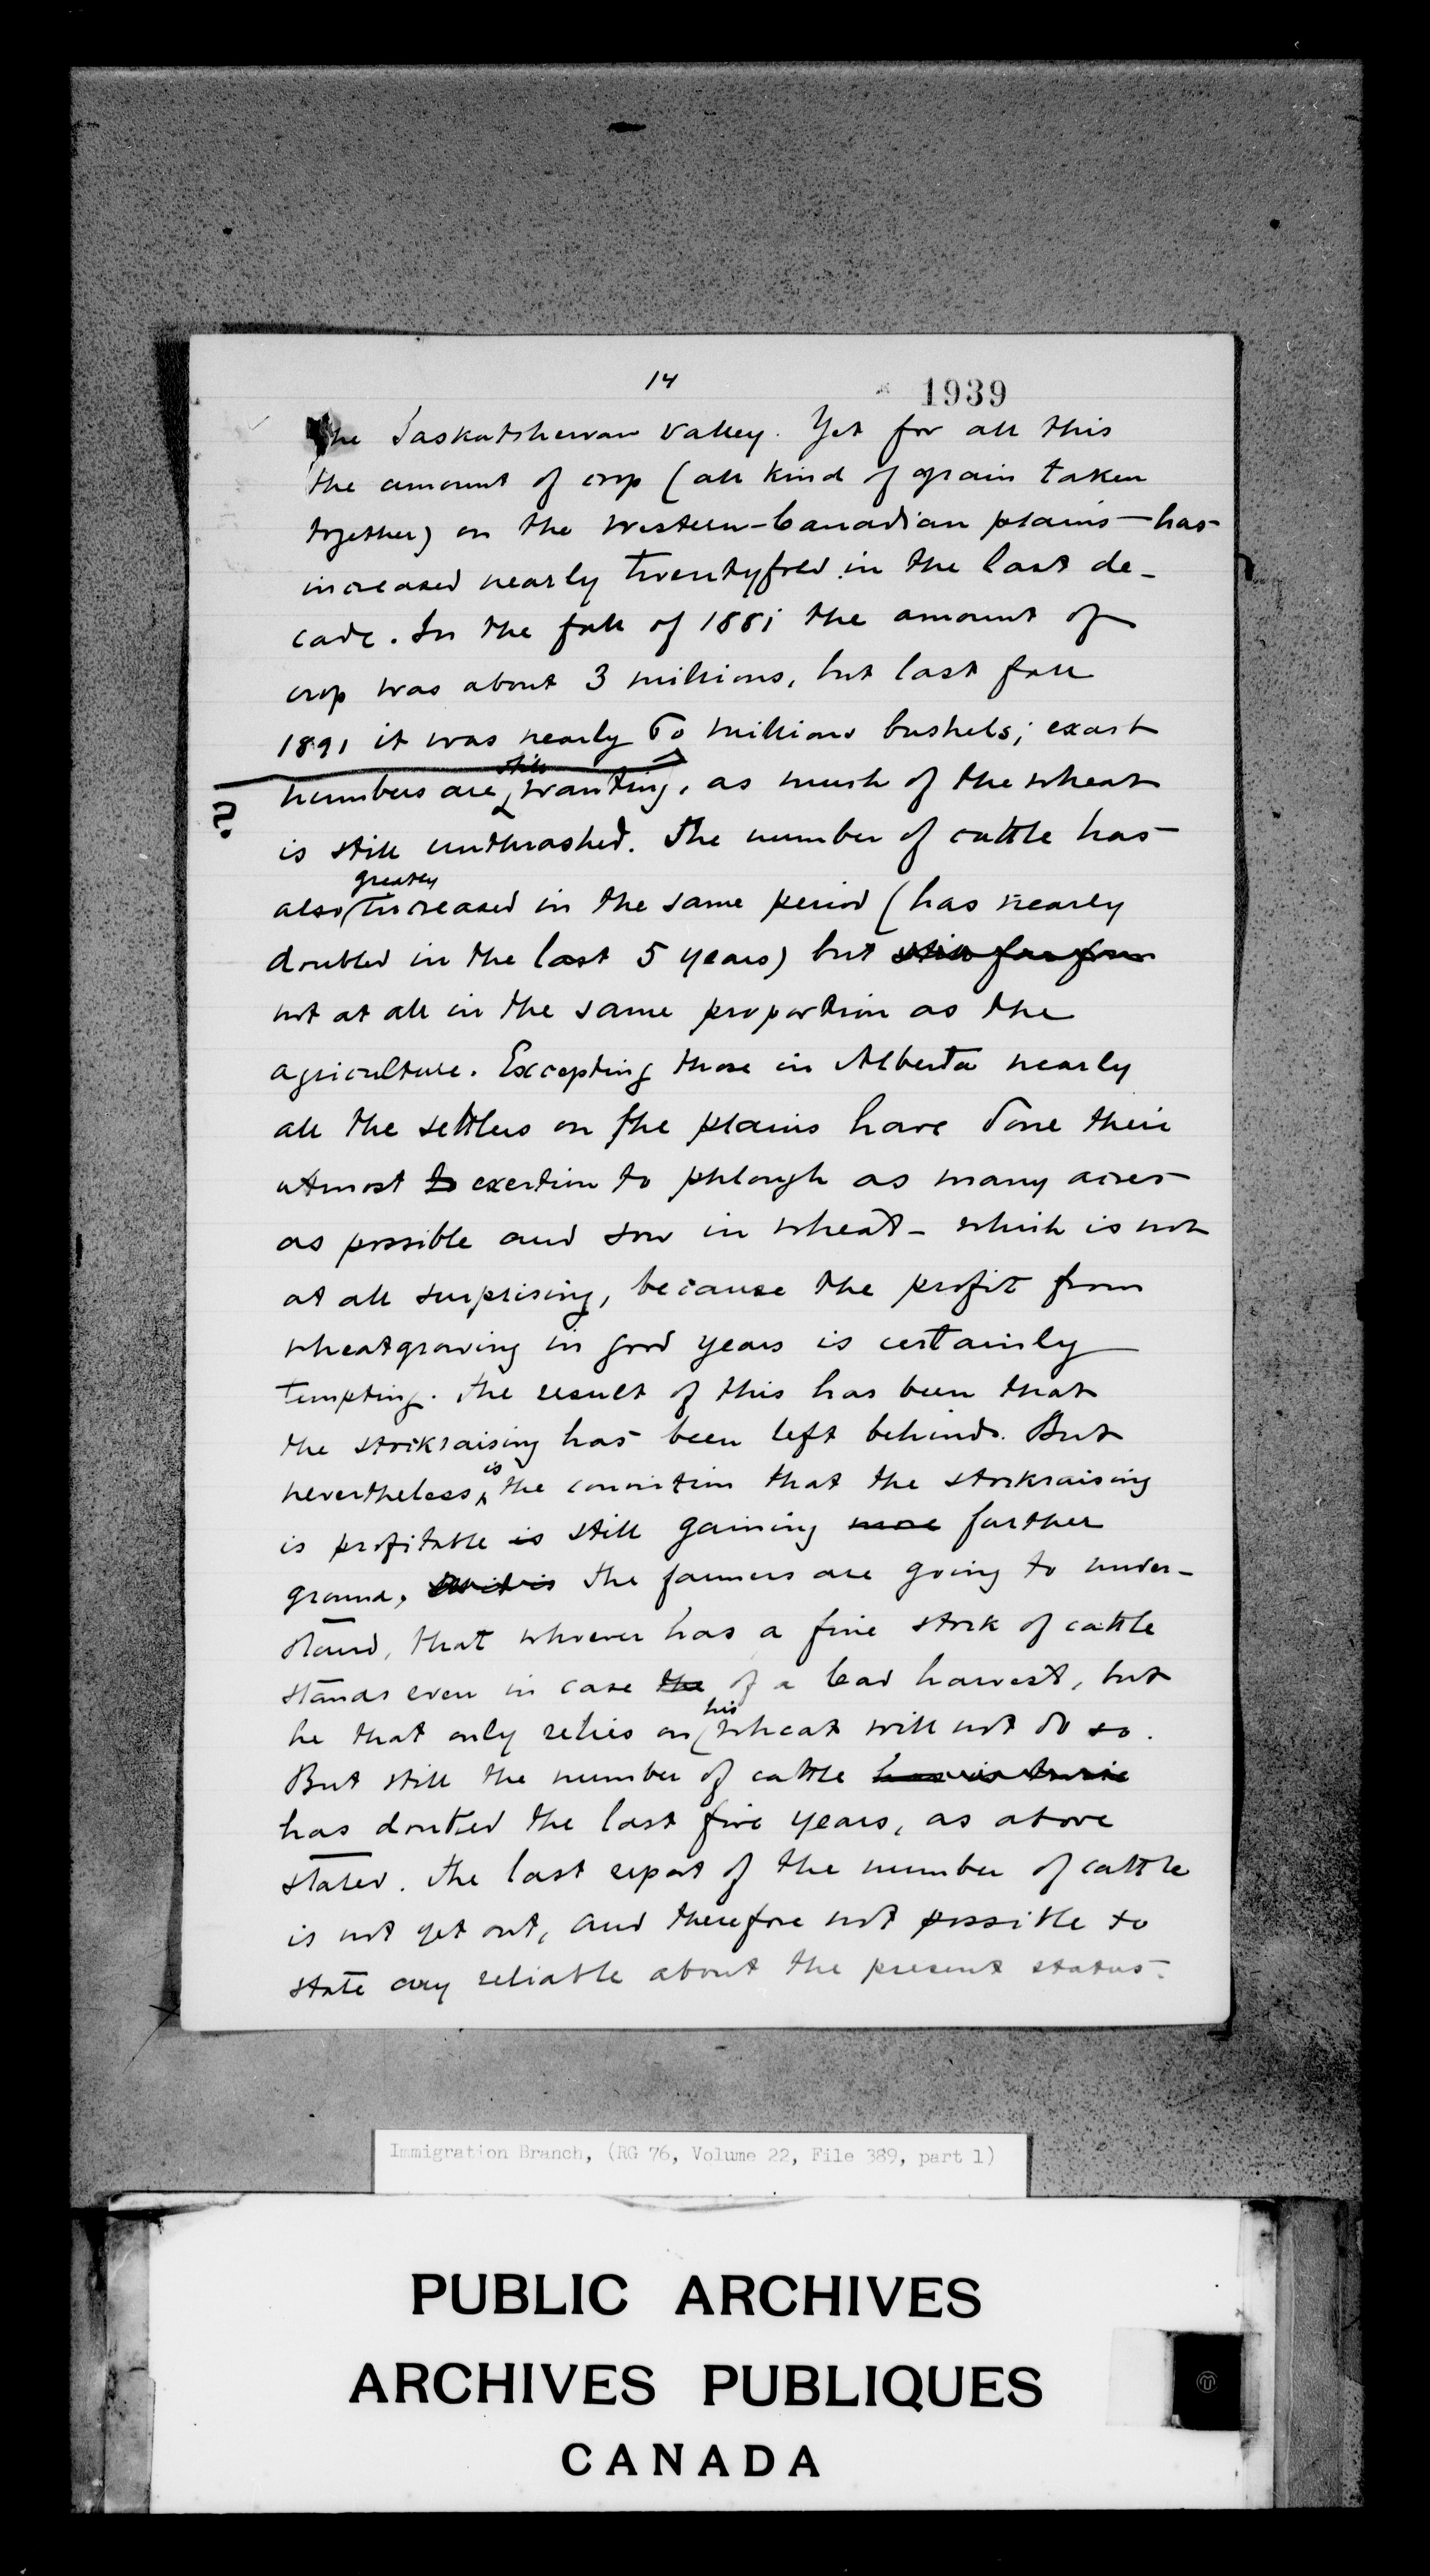 14
1939
the Saskatshewan Valley. Yet for all this
the amount of crop (all kind of grain taken
together) on the Western-Canadian plains has
increased nearly twentyfold in the last de-
cade. In the fall of 1881 the amount of
crop was about 3 millions, but last fall
1891 it was nearly 60 millions bushels; exact
still
numbers are wanting, as mush of the wheat
?
is still unthrashed. The number of cattle has
greatly
also increased in the same period (has nearly
doubled in the last 5 years) but still far from
not at all in the same proportion as the
agriculture. Excepting those in Alberta nearly
all the settlers on the plains have done their
utmost to exertion to phlough as many acres
as possible and sow in wheat - which is not
at all surprising, because the profit from
wheatgrowing in good years is certainly
tempting. The result of this has been that
the stokraising has been left behind. But
is
nevertheless, the conviction that the stokraising
is profitable is still gaining more further
ground, the farmers are going to under-
stand, that whoever has a fine stok of cattle
stands even in case the of a bad harvest, but
his
he that only relies on wheat will not do so.
But still the number of cattle
has doubled the last five years, as above
stated. The last report of the number of cattle
is not yet out, and therefore not possible to
state any reliable about the present status.
Immigration Branch, (RG 76, Volume 22, File 389, part 1)
PUBLIC ARCHIVES
ARCHIVES PUBLIQUES
CANADA